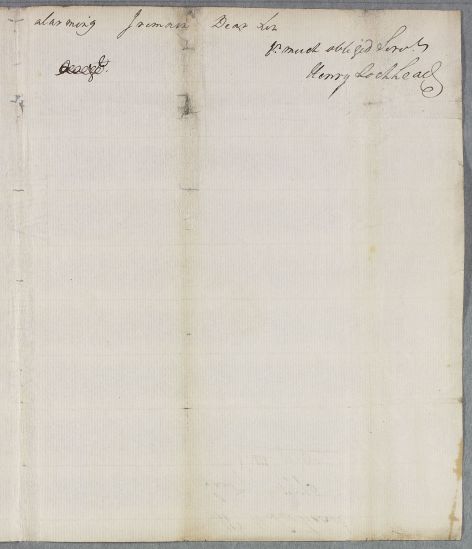 alarming I remain Dear Sir
Yr. much obliged Servt.
Henry Lochhead